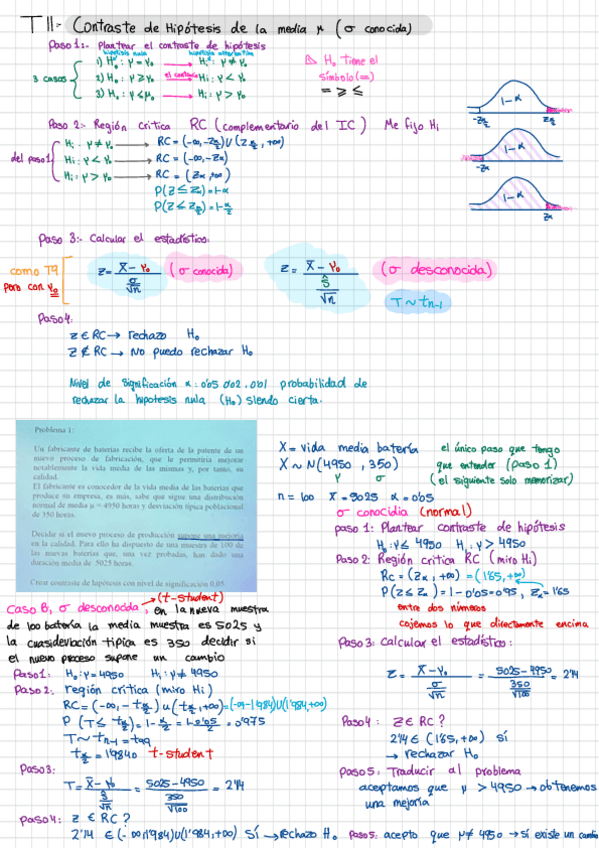 T11.- Contraste de Hipótesis de la media μ (σ conocida)
Paso 1:- Plantear el contraste de hipótesis
hipótesis nula hipótesis alternativa
3 casos
1) H₀: μ = μ₀ → H₁: μ ≠ μ₀
2) H₀: μ ≥ μ₀ el contrario → H₁: μ < μ₀
3) H₀: μ ≤ μ₀ → H₁: μ > μ₀
H₀ tiene el
símbolo (=)
= ≥ ≤
1-α
-Zα/2 Zα/2
Paso 2:- Región crítica RC (complementario del IC) Me fijo H₁
del paso 1
H₁: μ ≠ μ₀ → RC = (-∞, -Zα/2) U (Zα/2, +∞)
H₁: μ < μ₀ → RC = (-∞, -Zα)
H₁: μ > μ₀ → RC = (Zα, +∞)
P(Z ≤ Zα) = 1-α
P(Z ≤ Zα/2) = 1-α/2
1-α
-Zα
1-α
Zα
Paso 3:- Calcular el estadístico:
como T9
pero con μ₀
Z = X̄ - μ₀ / σ/√n (σ conocida)
Z = X̄ - μ₀ / Ŝ/√n (σ desconocida)
T ~ tn-1
Paso 4:
Z ∈ RC → rechazo H₀
Z ∉ RC → No puedo rechazar H₀
Nivel de significación α: 0'05 0'02, 0'01 probabilidad de
rechazar la hipotesis nula (H₀) siendo cierta.
Problema 1:
Un fabricante de baterías recibe la oferta de la patente de un
nuevo proceso de fabricación, que le permitiría mejorar
notablemente la vida media de las mismas y, por tanto, su
calidad.
El fabricante es conocedor de la vida media de las baterías que
produce su empresa, es más, sabe que sigue una distribución
normal de media μ = 4950 horas y desviación típica poblacional
de 350 horas.
Decidir si el nuevo proceso de producción supone una mejoría
en la calidad. Para ello ha dispuesto de una muestra de 100 de
las nuevas baterías que, una vez probadas, han dado una
duración media de 5025 horas.
Crear contraste de hipótesis con nivel de significación 0,05
X = vida media batería
X ~ N(4950, 350)
μ σ
n = 100 X̄ = 5025 α = 0'05
el único paso que tengo
que entender (paso 1)
(el siguiente solo memorizar)
σ conocidia (normal)
paso 1: Plantear contraste de hipótesis
H₀: μ ≤ 4950 H₁: μ > 4950
Paso 2: Región critica RC (miro H₁)
RC = (Zα, +∞) = (1'65, +∞)
P(Z ≤ Zα) = 1-0'05 = 0'95, Zα = 1'65
entre dos números
cojemos lo que directamente encima
Paso 3: Calcular el estadístico:
Z = X̄ - μ₀ / σ/√n = 5025-4950 / 350/√100 = 2'14
Paso 4: Z ∈ RC?
2'14 ∈ (1'65, +∞) sí
→ rechazar H₀
Paso 5: Traducir al problema
aceptamos que μ > 4950 → obtenemos
una mejoría
(t-student)
Caso B, σ desconocida, en la nueva muestra
de 100 batería la media muestra es 5025 y
la cuasideviación típica es 350 decidir si
el nuevo proceso supone un cambio
Paso 1: H₀: μ = 4950 H₁: μ ≠ 4950
Paso 2: región critica (miro H₁)
RC = (-∞, -tα/2) U (tα/2, +∞) = (-∞, -1'984) U (1'984, +∞)
P (T ≤ tα/2) = 1-α/2 = 1-0'05/2 = 0'975
T ~ tn-1 = t99
tα/2 = 1'9840 t-student
Paso 3:
T = X̄ - μ₀ / Ŝ/√n = 5025-4950 / 350/√100 = 2'14
Paso 4: Z ∈ RC?
2'14 ∈ (-∞, 1'984) U (1'984, +∞) Sí → rechazo H₀ Paso 5: acepto que μ ≠ 4950 → sí existe un cambio